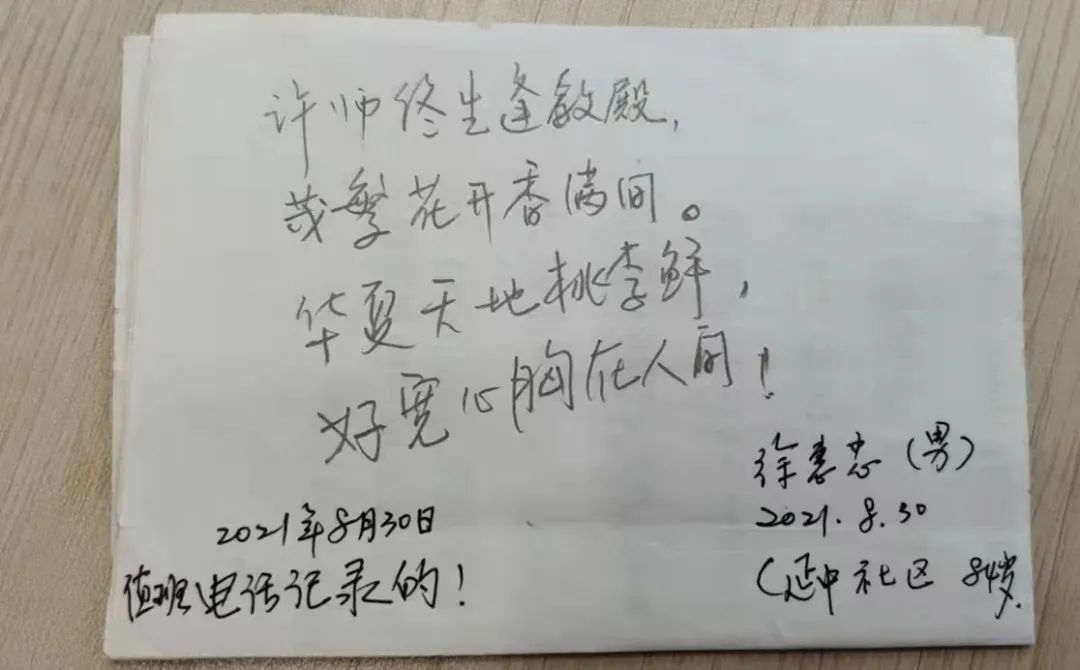 许师终生逢敏殿,
茂繁花开香满间。
华夏天地桃李鲜,
好宽心胸在人间!
徐惠忠(男)
2021年8月30日
2021.8.30
值班电话记录的!
(延中社区 84岁.